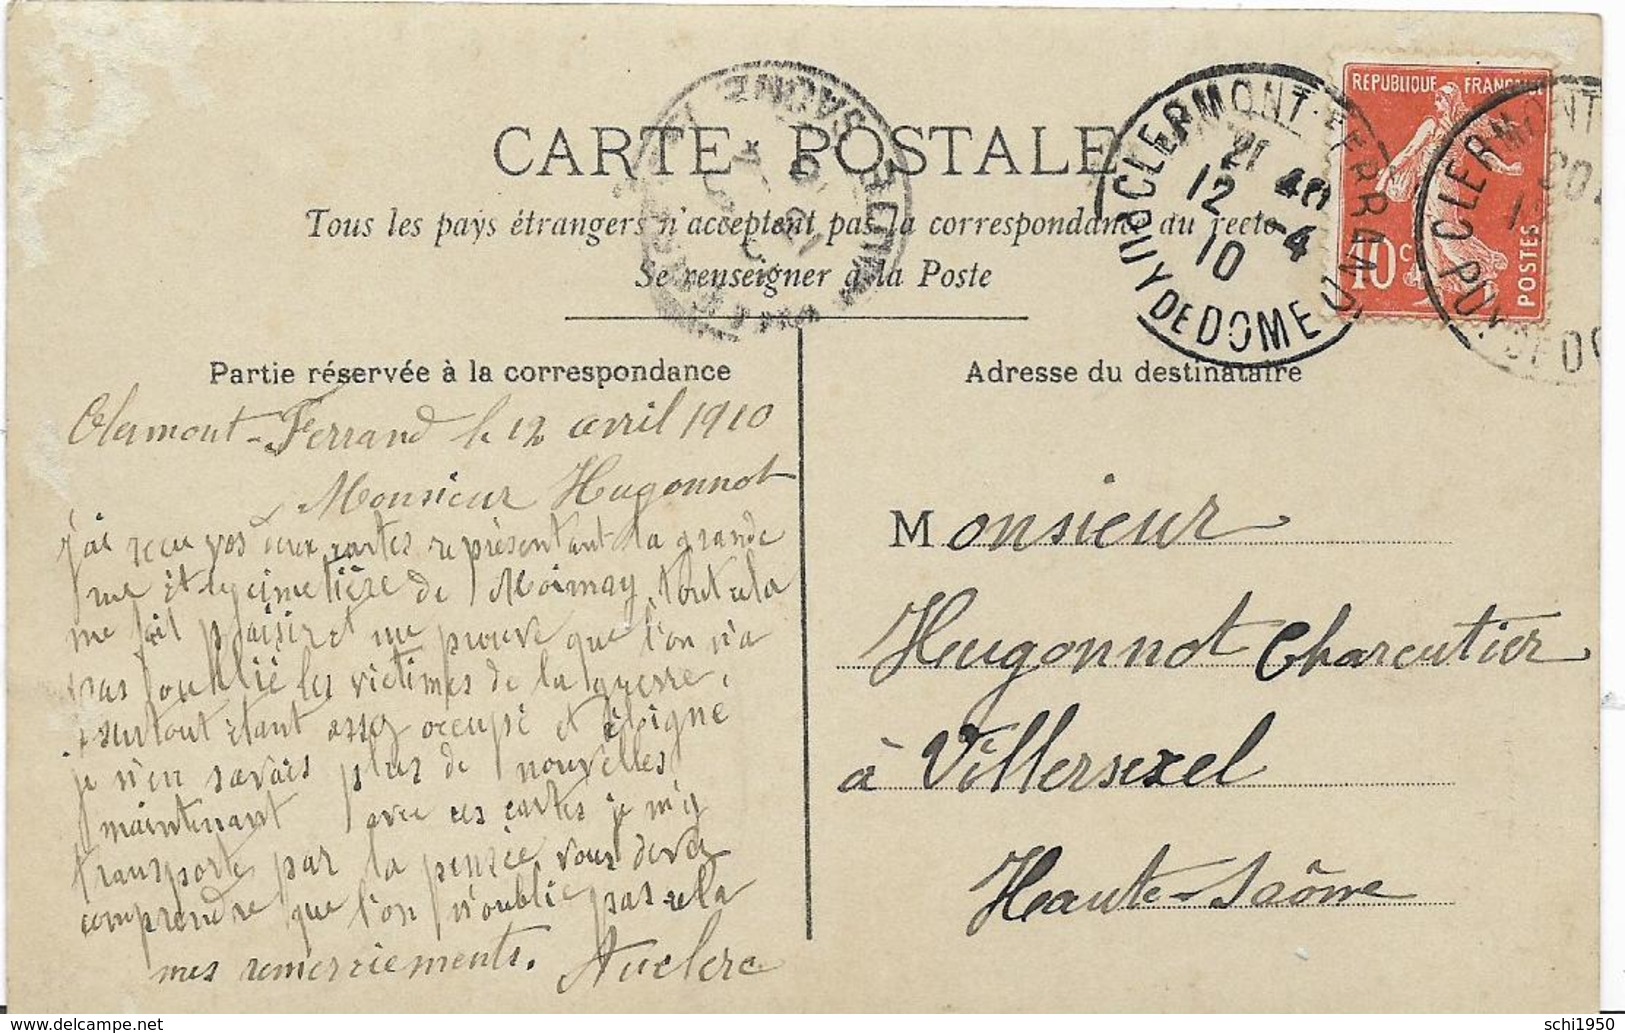 CARTE POSTALE
Tous les pays étrangers n'acceptent pas la correspondance au recto
Se renseigner à la Poste
CLERMONT-FERRAND
21
12 40
10 -4
PUY DE DOME
REPUBLIQUE FRANÇAISE
10 c
POSTES
CLERMONT
PUY DE DO
HAUTE SAONE
Partie réservée à la correspondance
Adresse du destinataire
Clermont-Ferrand le 12 avril 1910
Monsieur Hugonnot
j'ai recu vos deux cartes représentant la grande
rue et le cimetière de Moimay, tout cela
me fait plaisir et me prouve que l'on n'a
pas oublié les victimes de la guerre,
surtout étant assez occupé et éloigné
je n'en savais plus de nouvelles,
maintenant avec ces cartes je m'y
transporte par la pensée, vous devez
comprendre que l'on n'oublie pas cela
mes remerciements. Auclerc
Monsieur
Hugonnot Charcutier
à Villersexel
Haute-Saône
schi1950